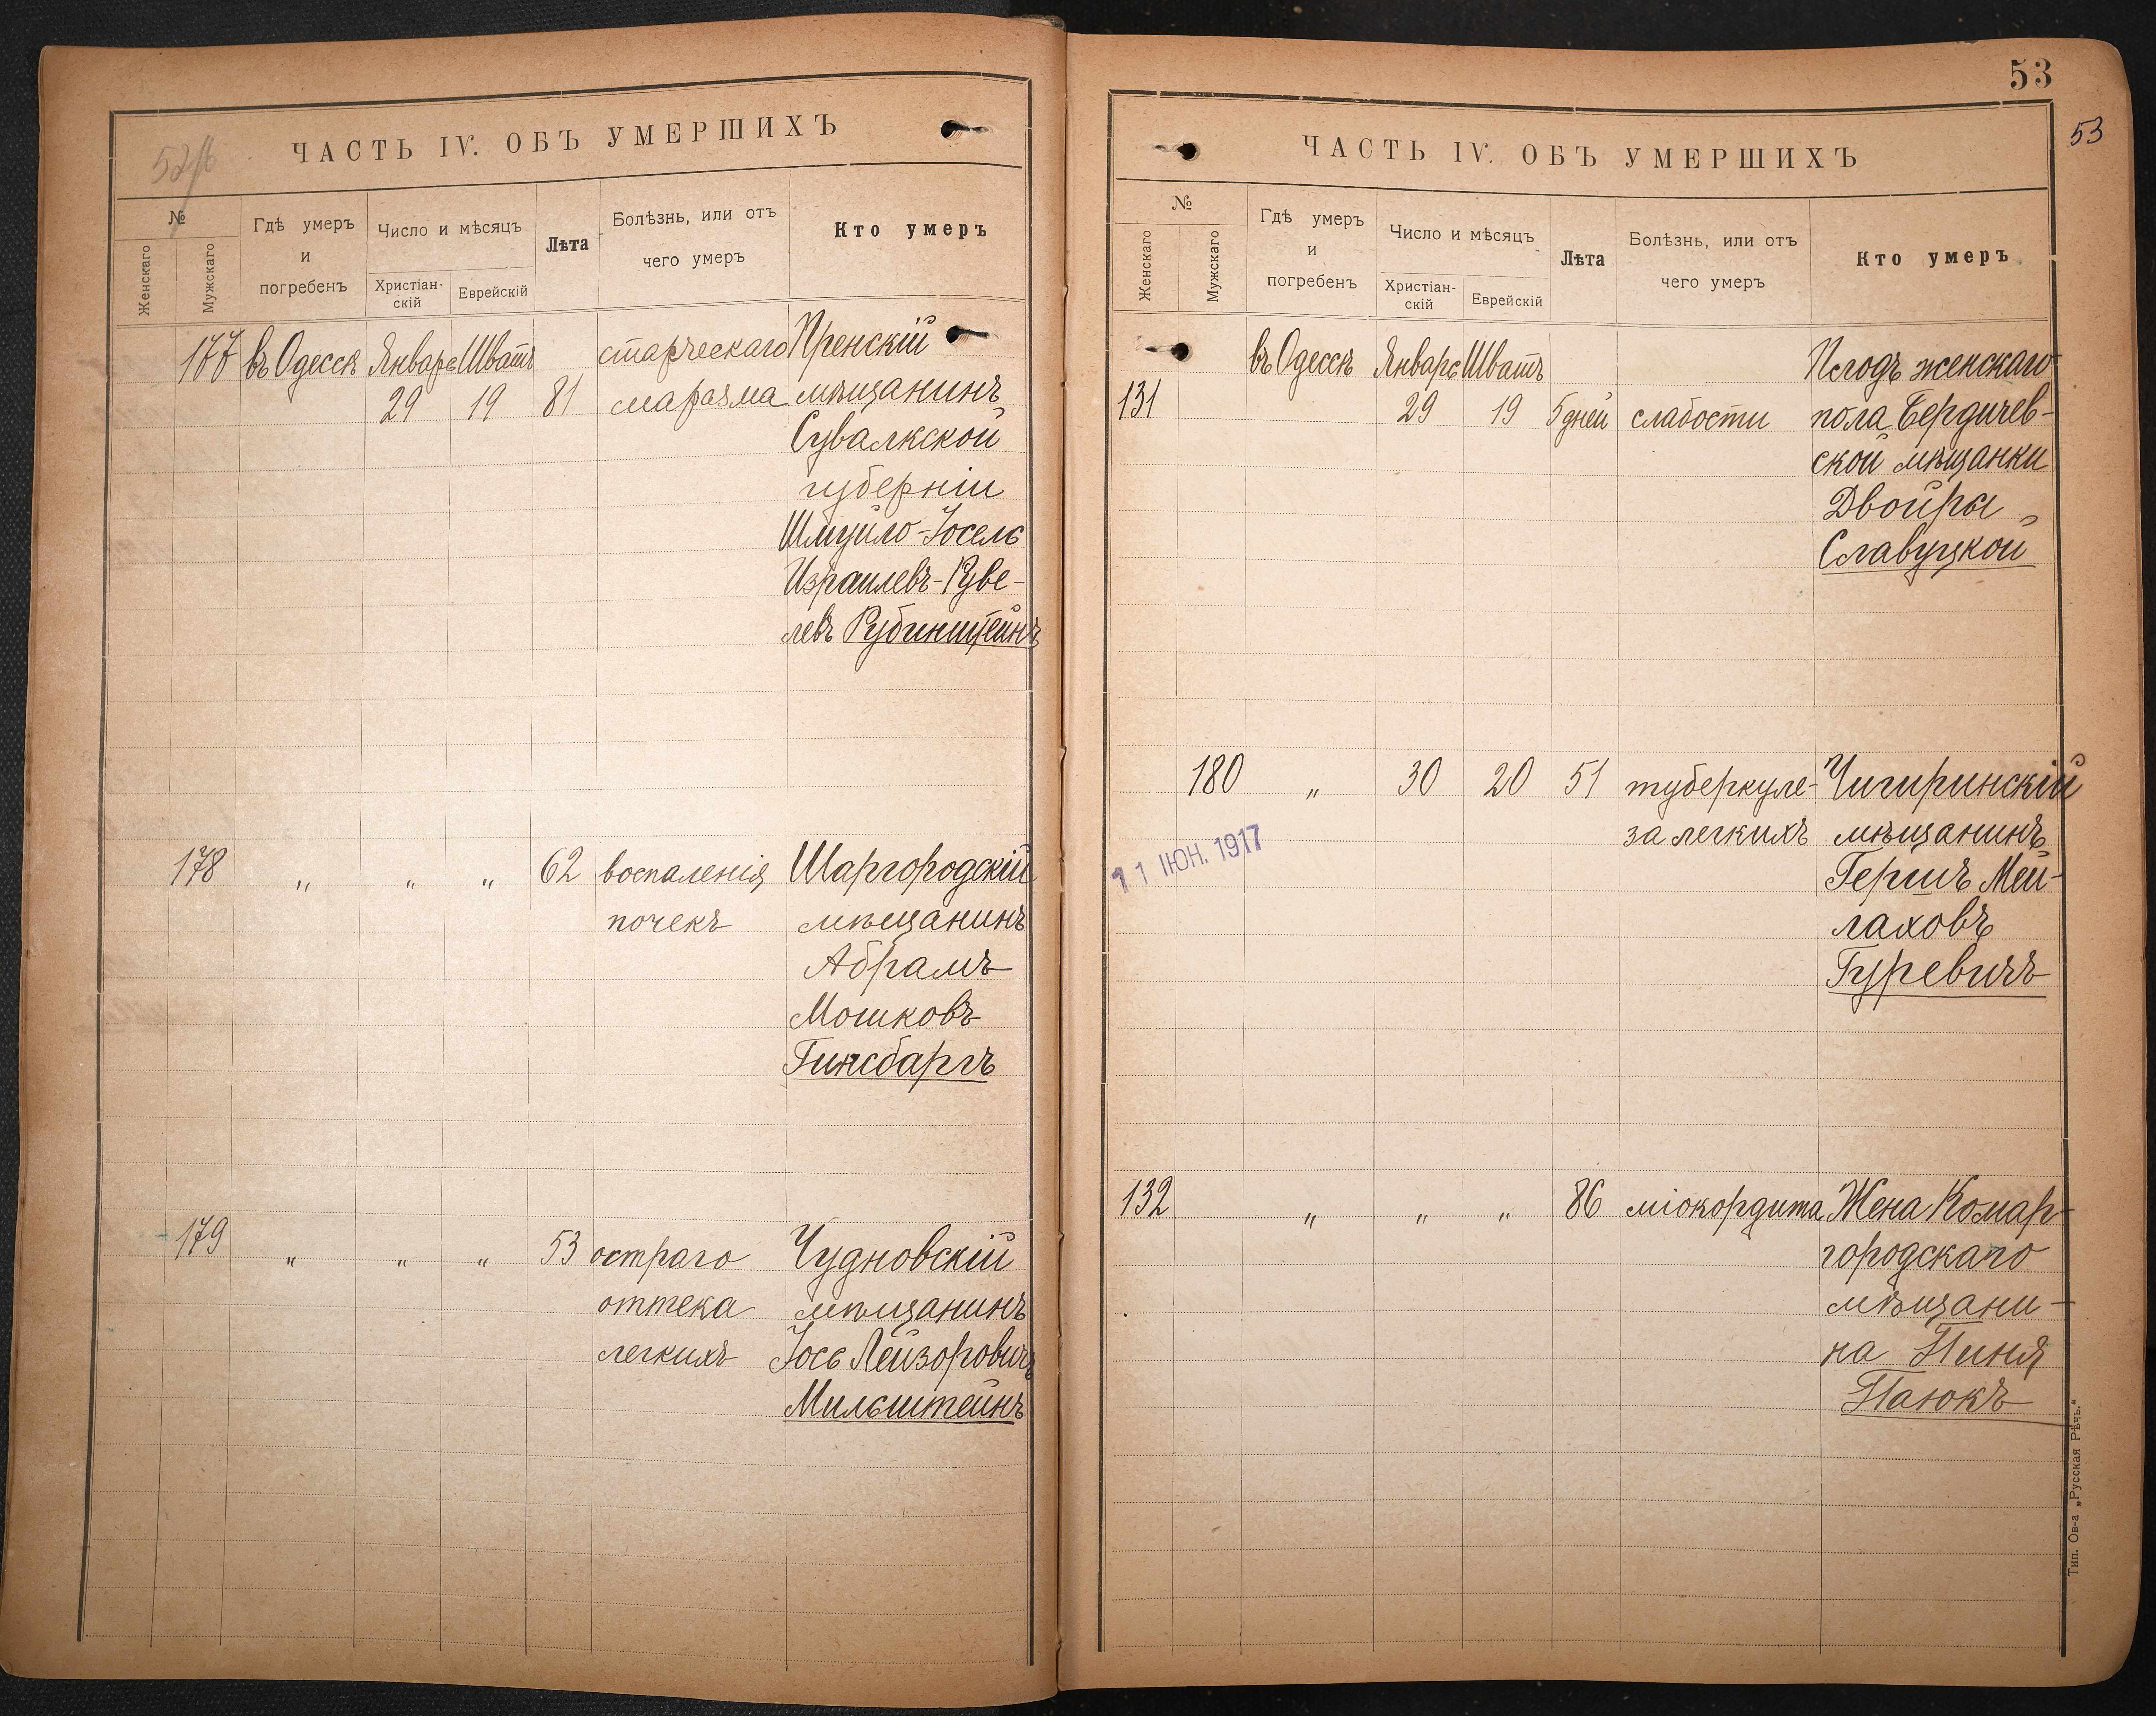 52/б
ЧАСТЬ IV. ОБЪ УМЕРШИХЪ
№
Женскаго
Мужскаго
Гдѣ умеръ
и
погребенъ
Число и мѣсяцъ
Христіан-
скій
Еврейскій
Лѣта
Болѣзнь, или отъ
чего умеръ
Кто умеръ
177 въ Одессѣ Январь Шватъ старческаго Пренскій
29 19 81 маразма мѣщанинъ
Сувалкской
губерніи
Шмуйло-Іосель
Израилевъ-Руве-
левъ Рубинштейнъ
178 „ „ „ 62 воспаленія Шаргородскій
почекъ мѣщанинъ
Абрамъ
Мошковъ
Гинсбаргъ
179 „ „ „ 53 остраго Чудновскій
оттека мѣщанинъ
легкихъ Іось Лейзоровичъ
Мильштейнъ
53
53
ЧАСТЬ IV. ОБЪ УМЕРШИХЪ
№
Женскаго
Мужскаго
Гдѣ умеръ
и
погребенъ
Число и мѣсяцъ
Христіан-
скій
Еврейскій
Лѣта
Болѣзнь, или отъ
чего умеръ
Кто умеръ
въ Одессѣ Январь Шватъ Плодъ женскаго
131 29 19 5 дней слабости пола Бердичев-
ской мѣщанки
Двойры
Славуцкой
180 „ 30 20 51 туберкуле- Чигиринскій
за легкихъ мѣщанинъ
11 ІЮН. 1917
Гершъ Мей-
лаховъ
Гуревичъ
132 „ „ „ 86 міокордита Жена Комар-
городскаго
мѣщани-
на Пиня
Паюкъ
Тип. Ов-а „Русская Рѣчь.“